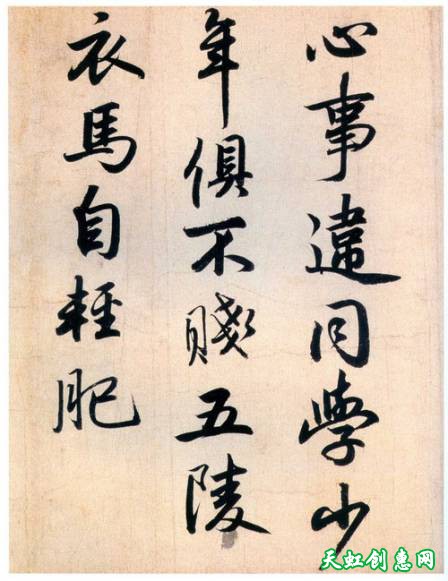 心事違同學少
年俱不賤五陵
衣馬自輕肥
天虹创惠网